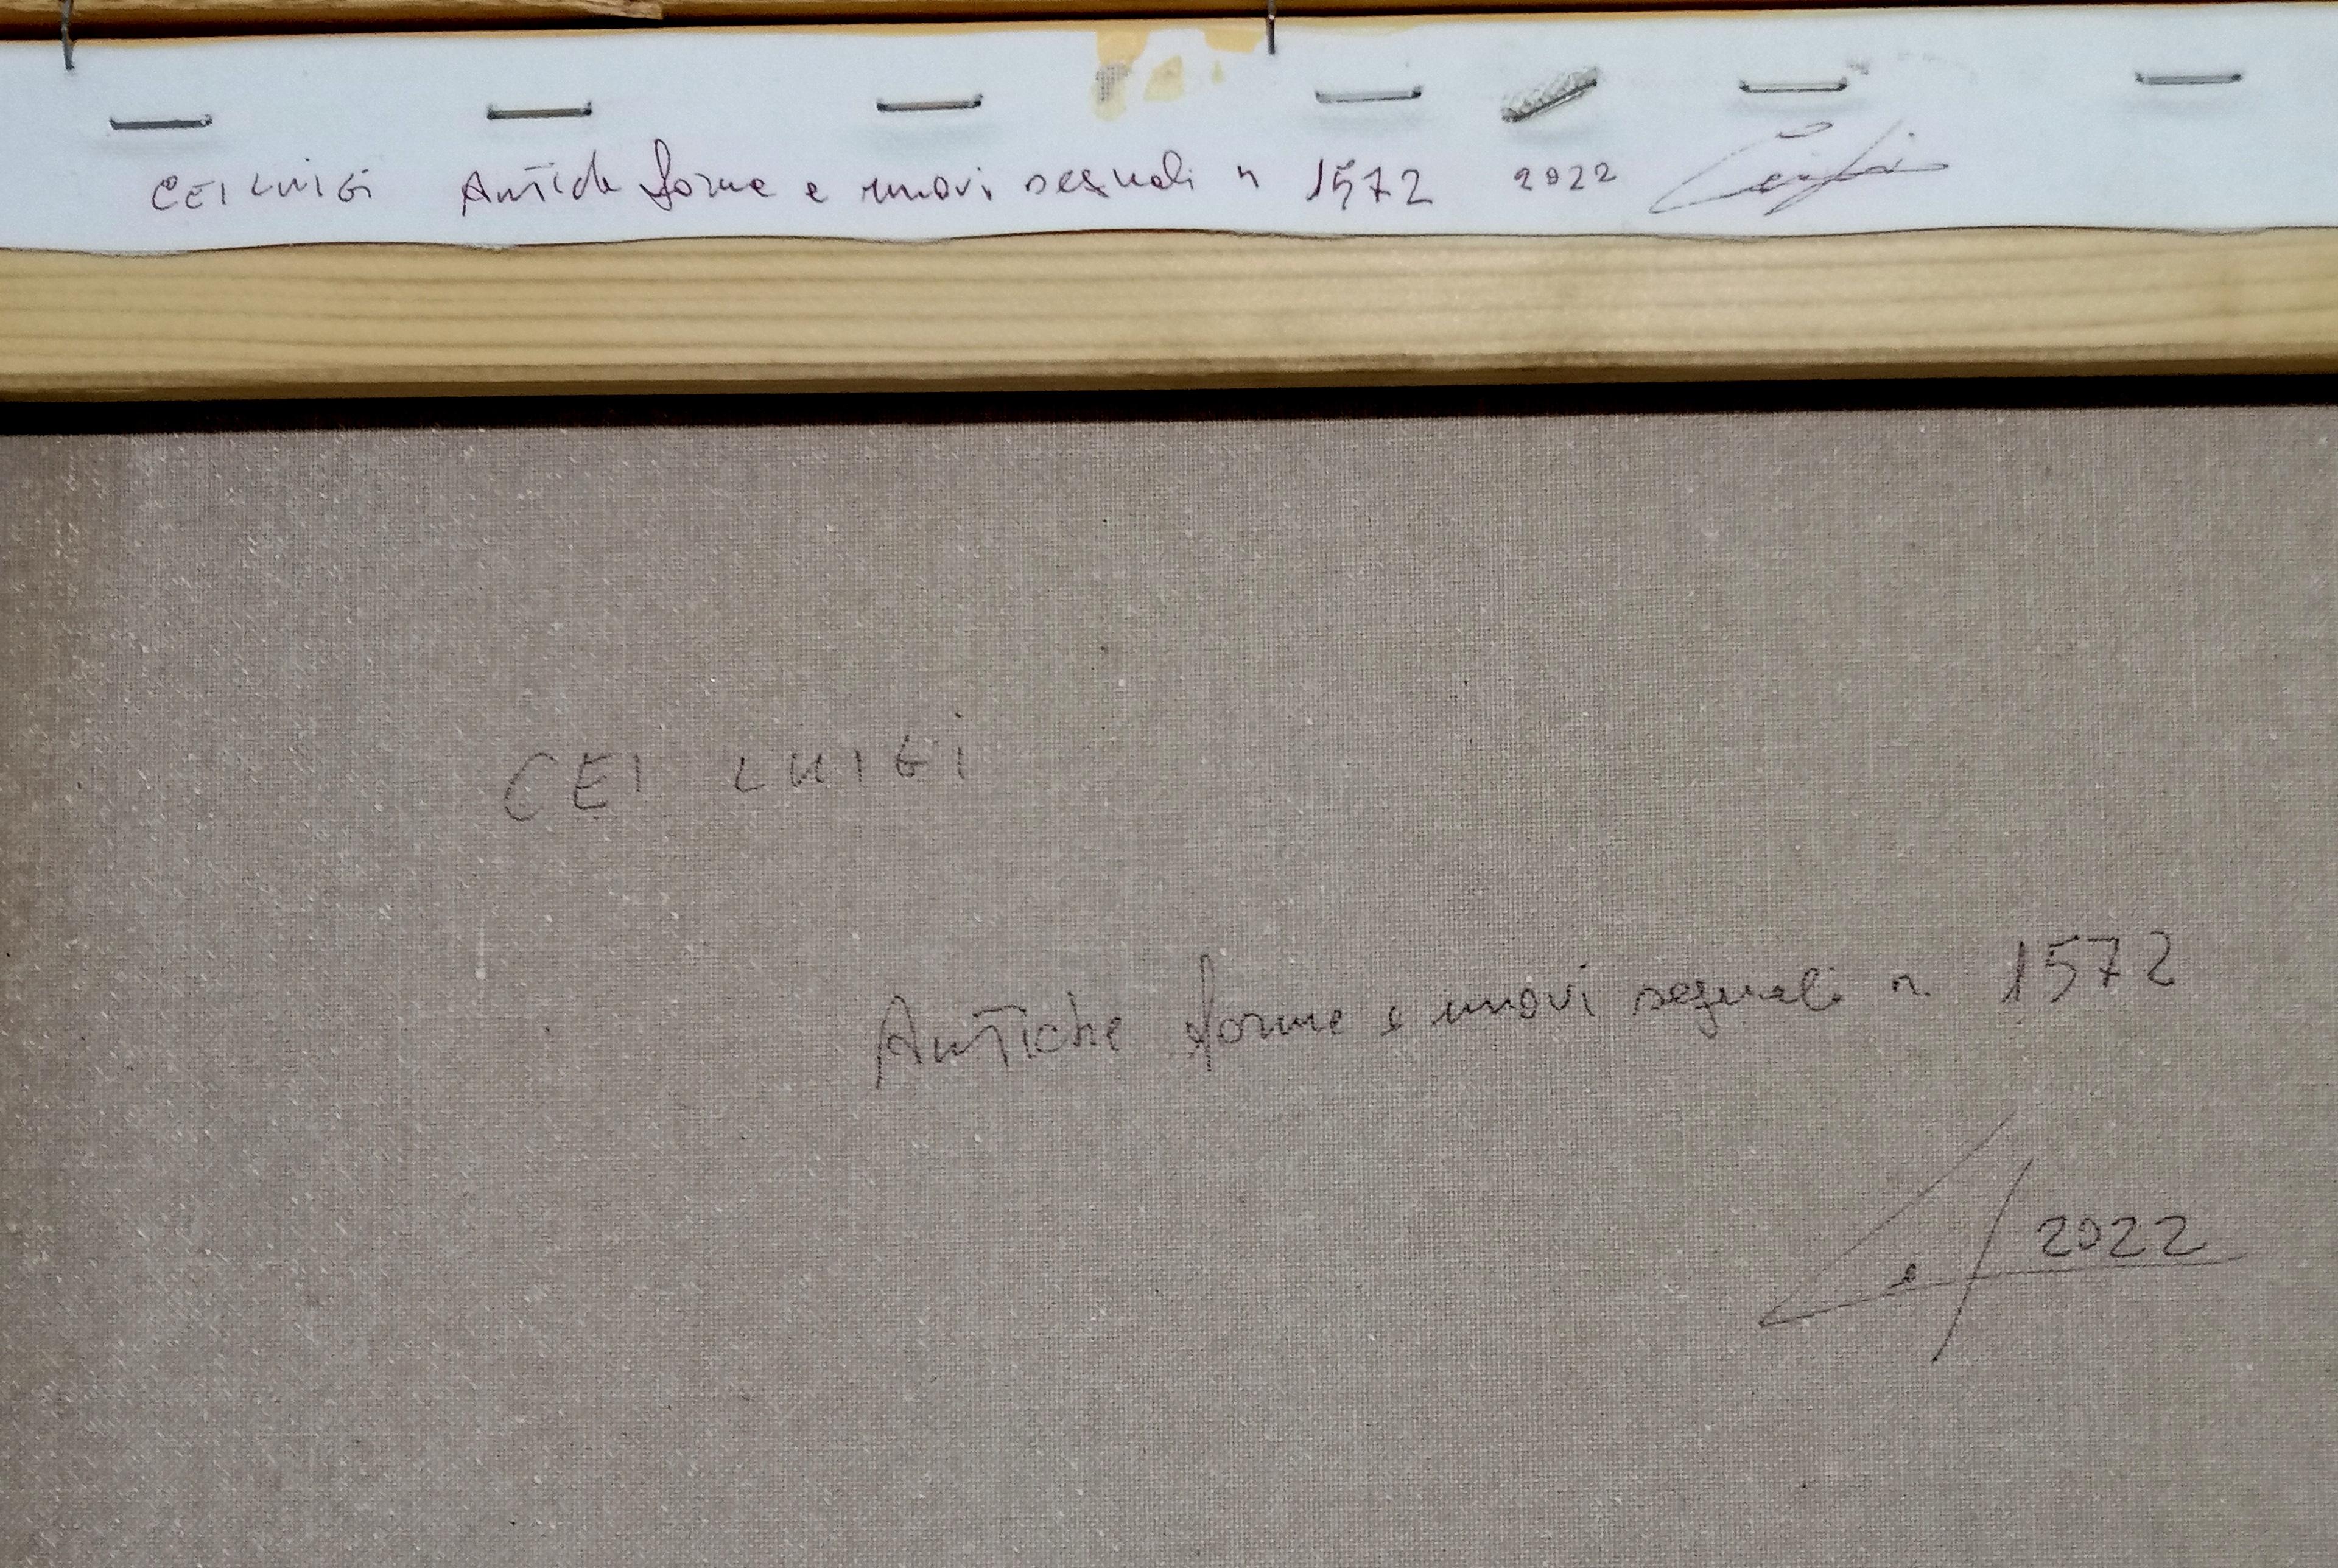 CEI LUIGI Antiche forme e nuovi segnali n 1572 2022
CEI LUIGI
Antiche forme e nuovi segnali n. 1572
2022